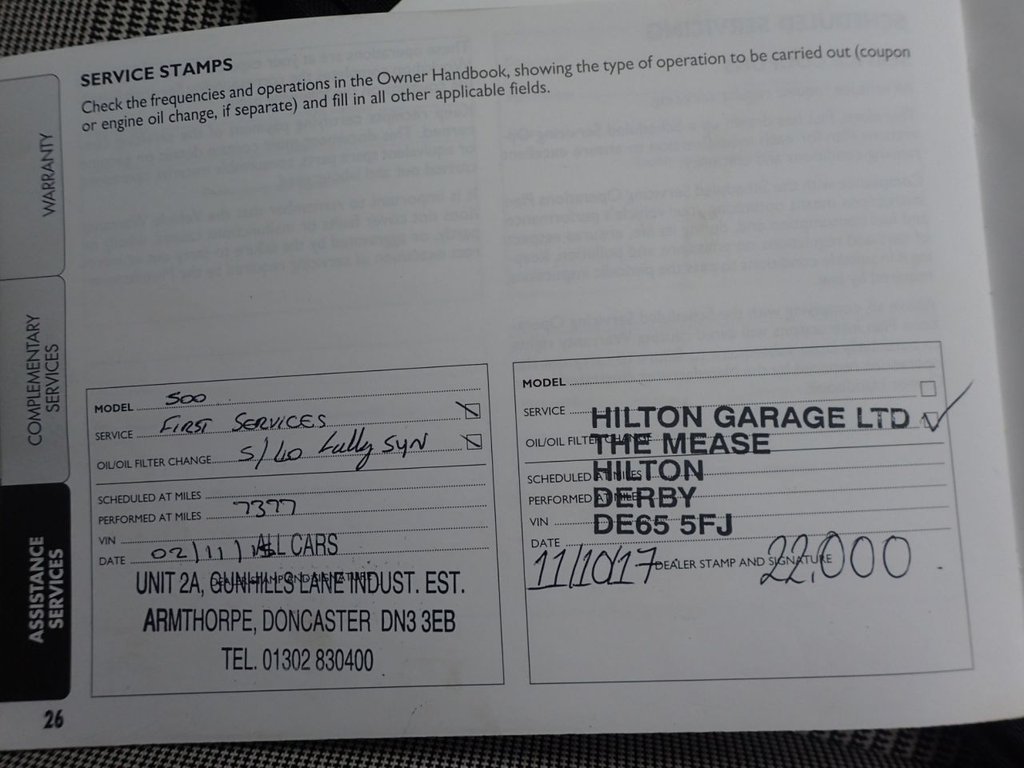 SERVICE STAMPS
Check the frequencies and operations in the Owner Handbook, showing the type of operation to be carried out (coupon
or engine oil change, if separate) and fill in all other applicable fields.
WARRANTY
COMPLEMENTARY
SERVICES
ASSISTANCE
SERVICES
MODEL 500
SERVICE FIRST SERVICES
OIL/OIL FILTER CHANGE 5/40 fully SYN
SCHEDULED AT MILES
PERFORMED AT MILES 7377
VIN
DATE 02/11/
ALL CARS
UNIT 2A, GUNHILLS LANE INDUST. EST.
ARMTHORPE, DONCASTER DN3 3EB
TEL. 01302 830400
MODEL
SERVICE
HILTON GARAGE LTD
OIL/OIL FILTER CHANGE
THE MEASE
SCHEDULED AT MILES
HILTON
PERFORMED AT MILES
DERBY
VIN
DE65 5FJ
DATE
11/10/17 DEALER STAMP AND SIGNATURE 22,000
26